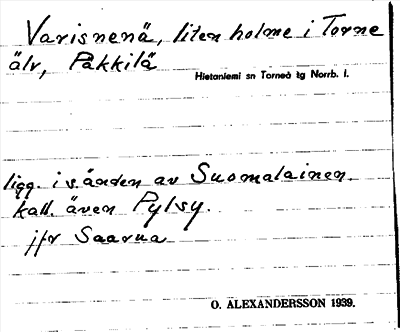 Varisnenä, liten holme i Torne
älv, Päkkilä
Hietaniemi sn Torneå tg Norrb. l.
ligg. i s. änden av Suomalainen.
kall. även Pylsy.
jfr Saarua
O. ALEXANDERSSON 1939.